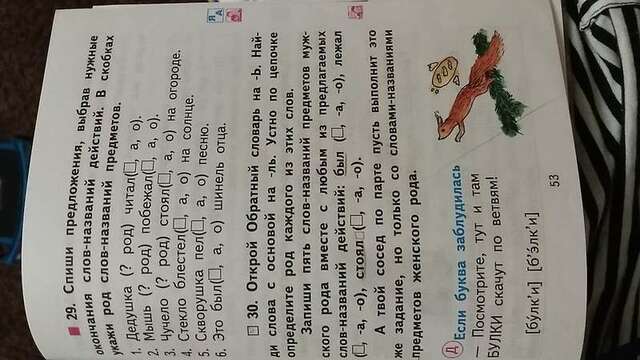 29. Спиши предложения, выбрав нужные
окончания слов-названий действий. В скобках
укажи род слов-названий предметов.
1. Дедушка (? род) читал(□, а, о).
2. Мышь (? род) побежал(□, а, о).
3. Чучело (? род) стоял(□, а, о) на огороде.
4. Стекло блестел(□, а, о) на солнце.
5. Скворушка пел(□, а, о) песню.
6. Это был(□, а, о) шинель отца.
30. Открой Обратный словарь на -Ь. Най-
ди слова с основой на -ль. Устно по цепочке
определите род каждого из этих слов.
Запиши пять слов-названий предметов муж-
ского рода вместе с любым из предлагаемых
слов-названий действий: был (□, -а, -о), лежал
(□, -а, -о), стоял□(□, -а, -о).
А твой сосед по парте пусть выполнит это
же задание, но только со словами-названиями
предметов женского рода.
Д Если буква заблудилась
— Посмотрите, тут и там
БУЛКИ скачут по ветвям!
[бу́лк'и] [б'э́лк'и]
53